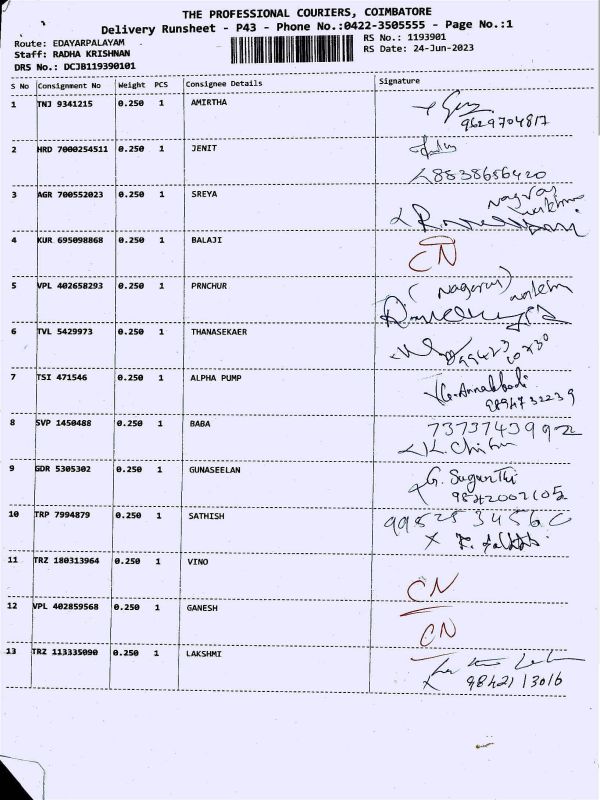 THE PROFESSIONAL COURIERS, COIMBATORE
Delivery Runsheet - P43 - Phone No.:0422-3505555 - Page No.:1
Route: EDAYARPALAYAM RS No.: 1193901
Staff: RADHA KRISHNAN RS Date: 24-Jun-2023
DRS No.: DCJB119390101
S No Consignment No Weight PCS Consignee Details Signature
1 TNJ 9341215 0.250 1 AMIRTHA
9629704817
2 HRD 7000254511 0.250 1 JENIT
8838656420
3 AGR 700552023 0.250 1 SREYA
Nagraj
4 KUR 695098868 0.250 1 BALAJI CN
5 VPL 402658293 0.250 1 PRNCHUR
6 TVL 5429973 0.250 1 THANASEKAER
7 TSI 471546 0.250 1 ALPHA PUMP
9894732239
8 SVP 1450488 0.250 1 BABA 7373743992
9 GDR 5305302 0.250 1 GUNASEELAN G. Suganthi
9842002105
10 TRP 7994879 0.250 1 SATHISH
11 TRZ 180313964 0.250 1 VINO CN
12 VPL 402859568 0.250 1 GANESH CN
13 TRZ 113335090 0.250 1 LAKSHMI
9842113016